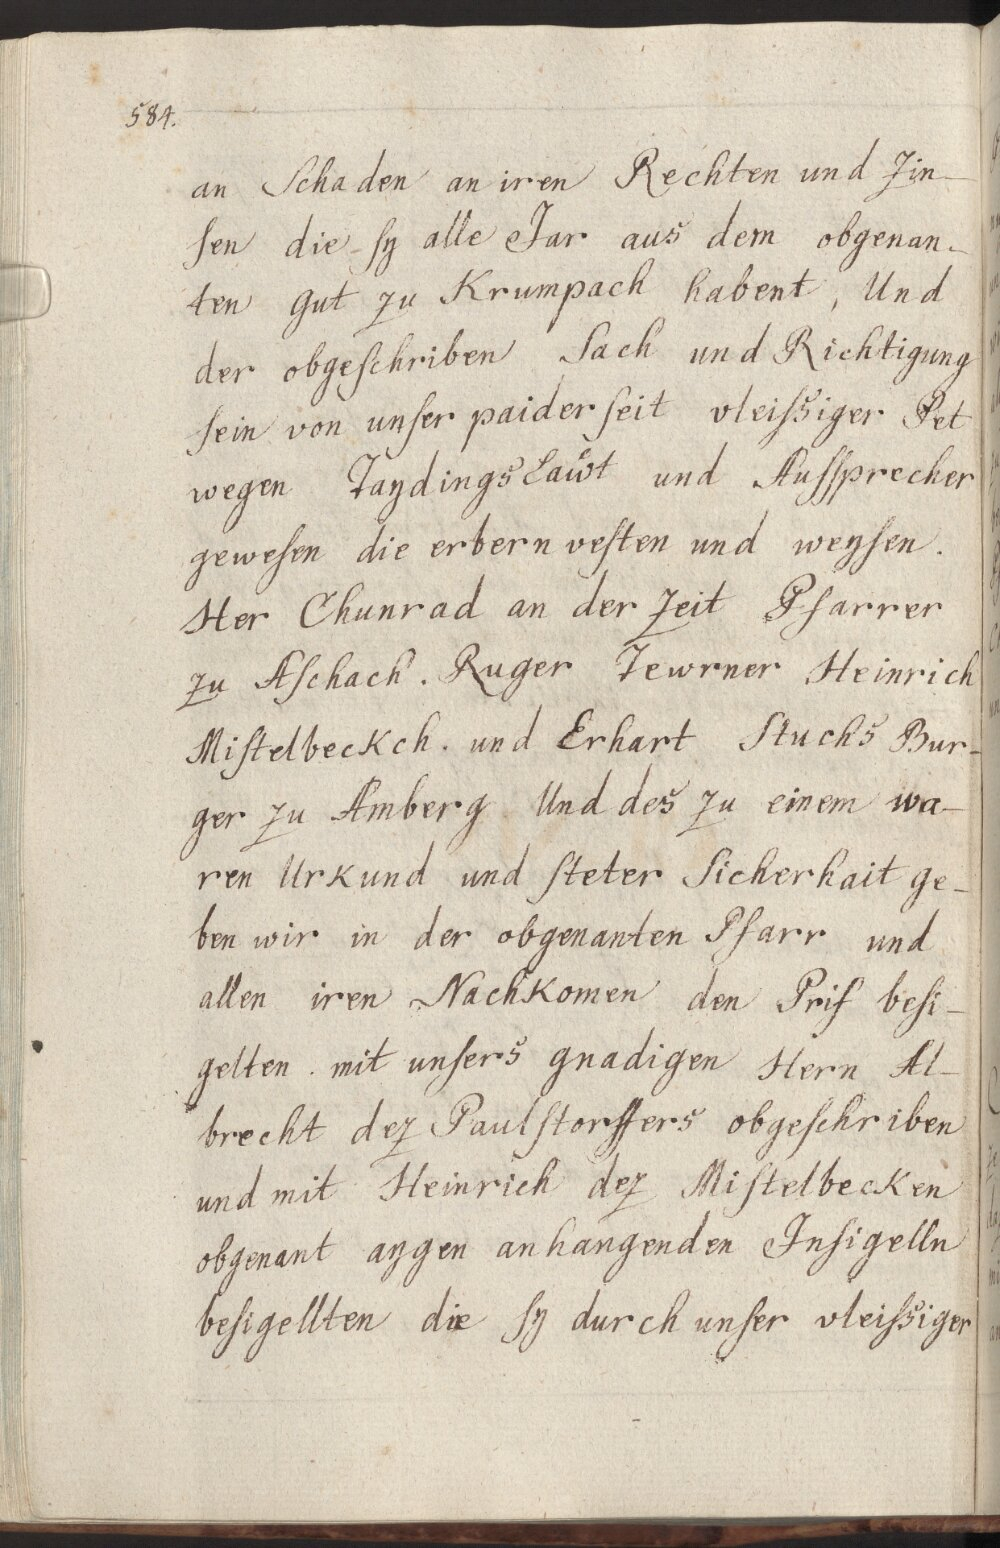 584.
an Schaden an iren Rechten und Zin-
sen die sy alle Jar aus dem obgenan-
ten Gut zu Krumpach habent, Und
der obgeschriben Sach und Richtigung
sein von unser paider seit vleissiger Pet
wegen Taydingslawt und Aussprecher
gewesen die erbern vesten und weysen.
Her Chunrad an der Zeit Pfarrer
zu Aschach. Ruger Tewrner Heinrich
Mistelbeckch. und Erhart Stuchs Bur-
ger zu Amberg Und des zu einem wa-
ren Urkund und steter Sicherhait ge-
ben wir in der obgenanten Pfarr und
allen iren Nachkomen den Prif besi-
gelten. mit unsers gnadigen Hern Al-
brecht dez Paulstorffers obgeschriben
und mit Heinrich dez Mistelbecken
obgenant aygen anhangenden Insigelln
besigellten die sy durch unser vleissiger